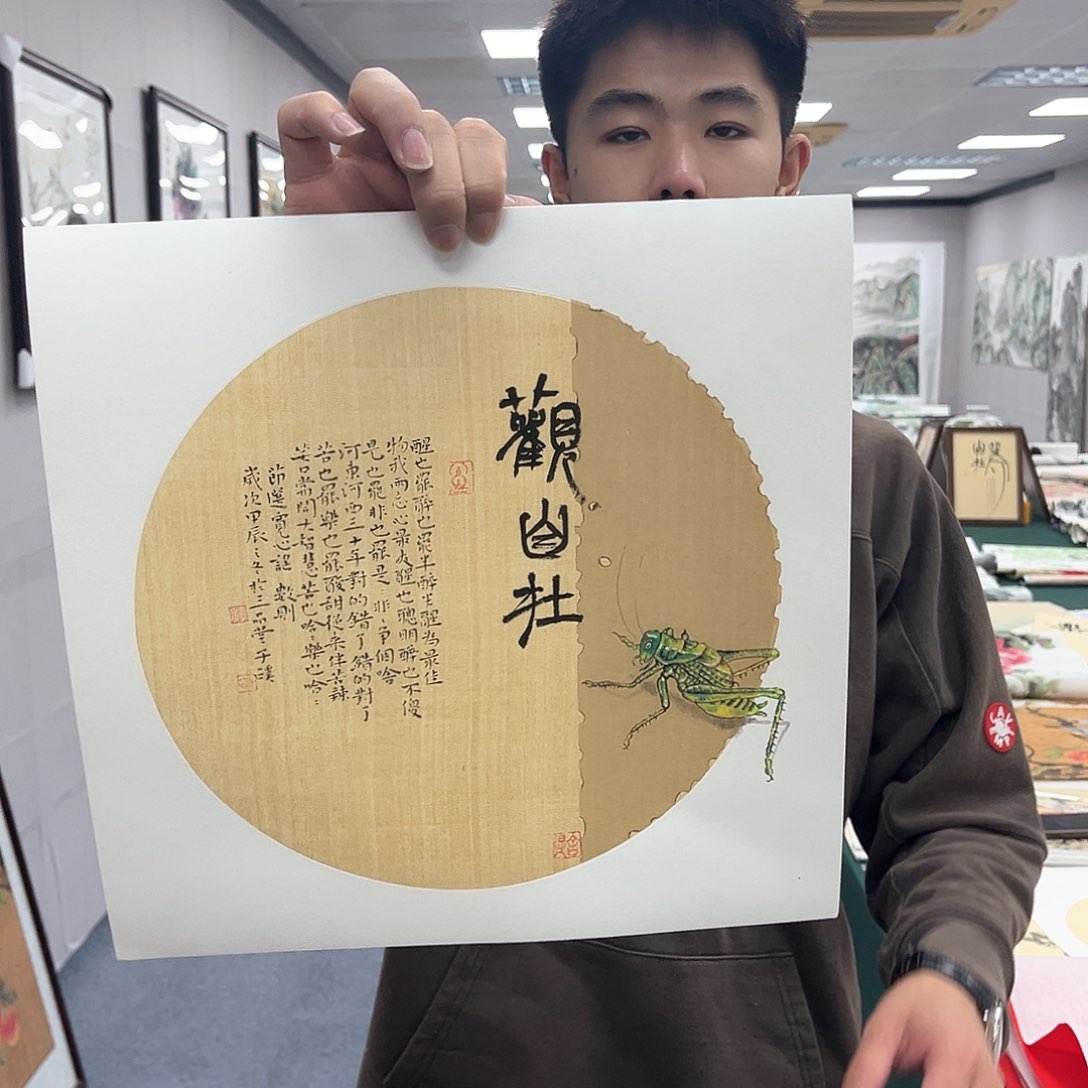 觀自在
醒也罷醉也罷半醉半醒為最佳
物我兩忘心最醒也聰明醉也不傻
是也罷非也罷是〻非〻爭個啥
河東河西三十年對的錯了錯的對了
苦也罷樂也罷酸甜從來伴苦辣
笑口常開大智慧苦也哈〻樂也哈〻
節選寬心謠數則
歲次甲辰之冬於三品堂子溪